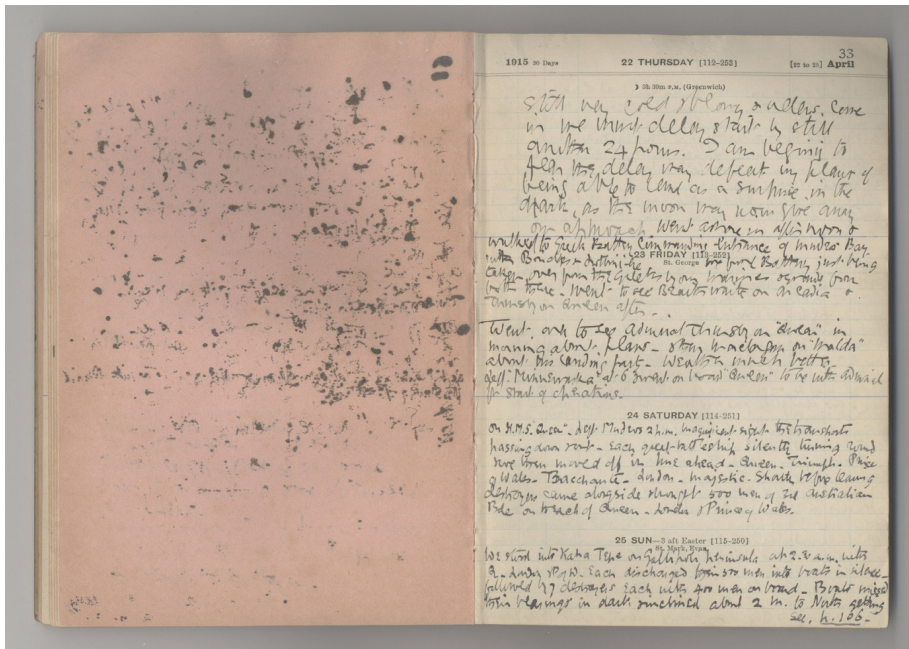 33
1915 20 Days 22 THURSDAY [112-253] [22 to 25] April
3h 39m P.M. (Greenwich)
Still very cold strong & unless come
in we must delay start by still
another 24 hours. I am begining to
fear the delay may defeat my plans of
being able to land as a surprise in the
dark, as the moon may now give away
our approach. Went ashore in afternoon &
walked to Greek Battery Commanding Entrance of Mudros Bay
23 FRIDAY [113-252]
St. George
with Bridges
Battery just being
taken over from the Greeks by
from
both there - Went to see Braithwaite on Arcadia &
Thursby on Queen after.
Went over to see Admiral Thursby on "Queen" in
morning about plans -
about his landing part. Weather much better
Left "Minnewaska" at 6 & went on board "Queen" to be with Admiral
for start of operations.
24 SATURDAY [114-251]
On H.M.S. Queen - Left Mudros 2 p.m. magnificent sight the transports
passing down
- Each great battleship silently turning round
then moved off in line ahead - Queen - Triumph - Prince
of Wales - Bacchante - London - Majestic. Shortly before leaving
destroyers came alongside & brought 500 men of 3rd Australian
Bde on to each of Queen - London & Prince of Wales.
25 SUN—3 aft Easter [115-250]
St. Mark, Evan.
We stood into Kaba Tepe on Gallipoli Peninsula at 2.30 a.m. with
Q - London & P of W. Each discharged their 500 men into boats in silence -
followed by 7 destroyers each with 400 men on board - Boats missed
their bearings in dark & inclined about 2 m. to North getting
see, p. 166 -